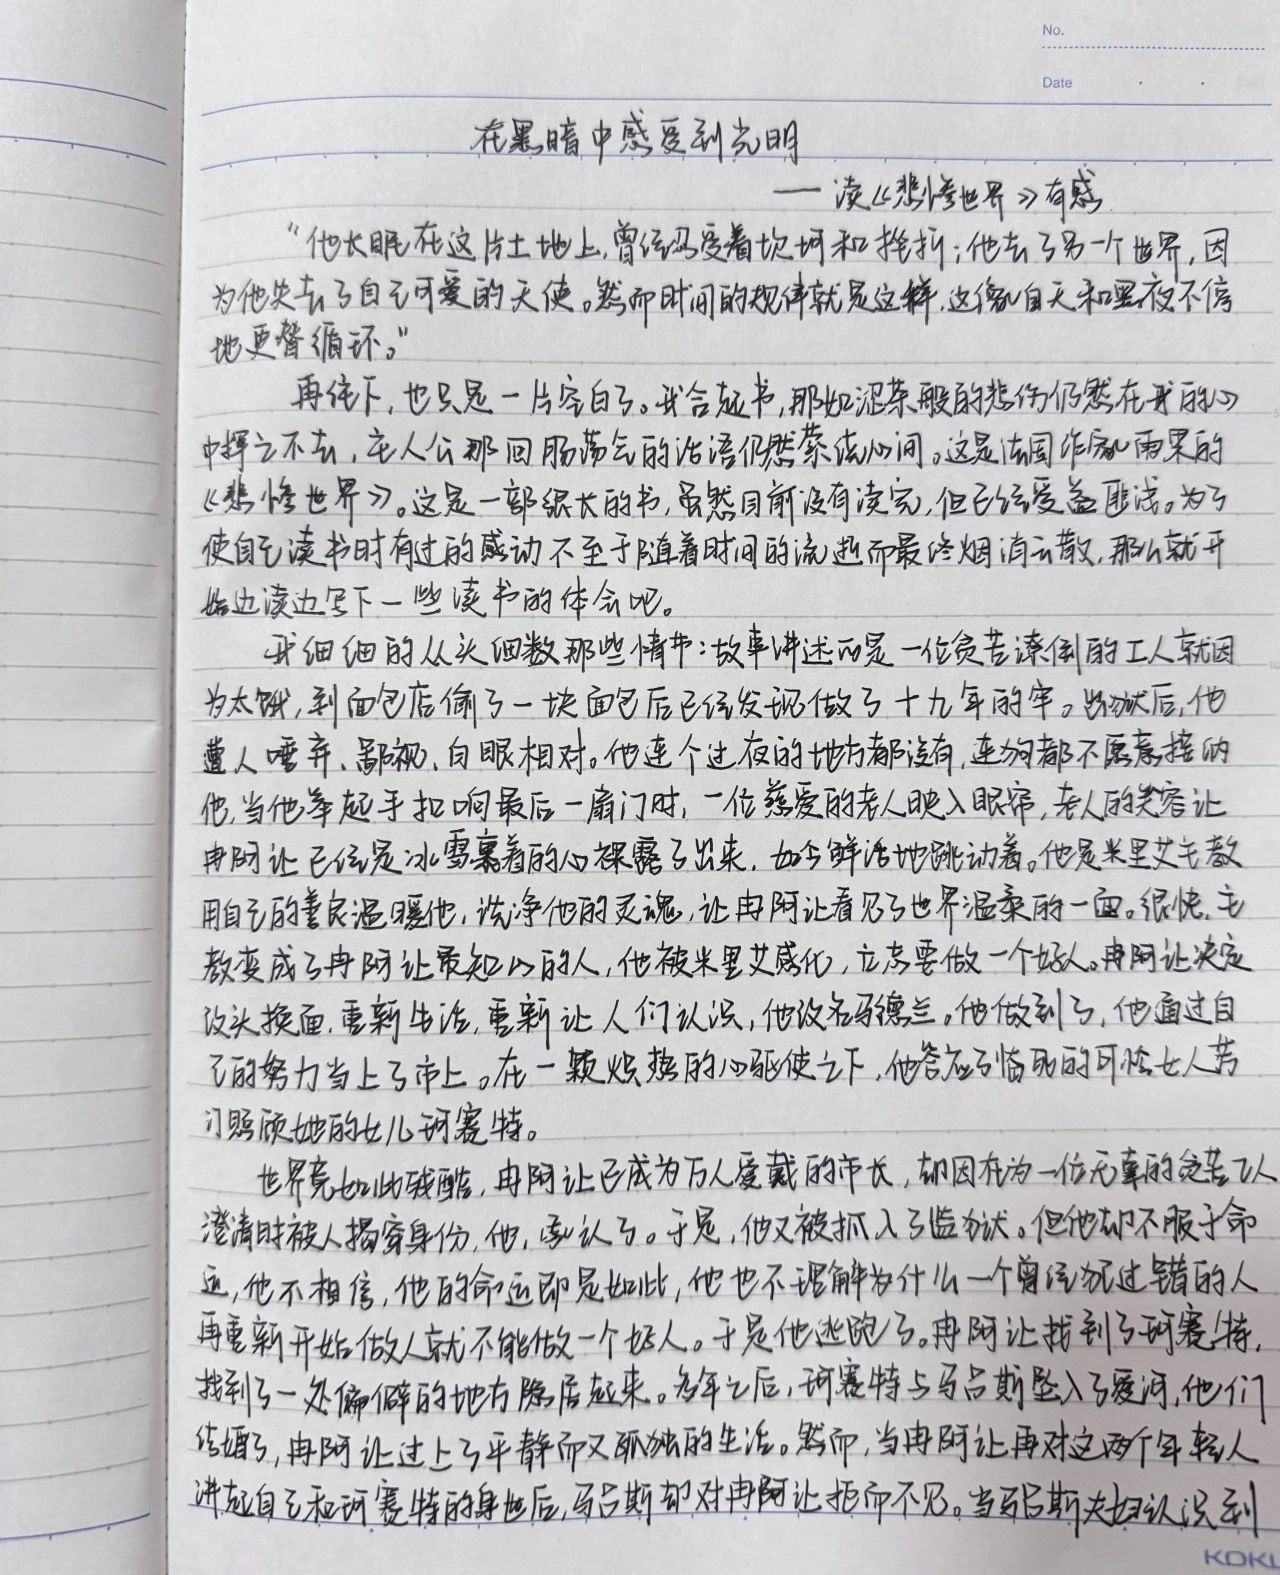 No.
Date
在黑暗中感受到光明
——读《悲惨世界》有感
“他长眠在这片土地上,曾经忍受着坎坷和挫折;他去了另一个世界,因
为他失去了自己可爱的天使。然而时间的规律就是这样,这像白天和黑夜不停
地更替循环。”
再往下,也只是一片空白了。我合起书,那如泥浆般的悲伤仍然在我的心
中挥之不去,主人公那回肠荡气的话语仍然萦绕心间。这是法国作家雨果的
《悲惨世界》。这是一部很长的书,虽然目前没有读完,但已经受益匪浅。为了
使自己读书时有过的感动不至于随着时间的流逝而最终烟消云散,那么就开
始边读边写下一些读书的体会吧。
我细细的从头细数那些情节:故事讲述而是一位贫苦潦倒的工人就因
为太饿,到面包店偷了一块面包后已经发现做了十九年的牢。出狱后,他
遭人唾弃、鄙视、白眼相对。他连个过夜的地方都没有,连狗都不愿意接纳
他,当他举起手扣响最后一扇门时,一位慈爱的老人映入眼帘,老人的笑容让
冉阿让已经是冰雪裹着的心裸露了出来,如今鲜活地跳动着。他是米里艾主教
用自己的善良温暖他,洗净他的灵魂,让冉阿让看见了世界温柔的一面。很快,主
教变成了冉阿让最知心的人,他被米里艾感化,立志要做一个好人。冉阿让决定
改头换面,重新生活,重新让人们认识,他改名马德兰。他做到了,他通过自
己的努力当上了市上。在一颗炽热的心驱使之下,他答应了临死的可怜女人芳
汀照顾她的女儿珂赛特。
世界竟如此残酷,冉阿让已成为万人爱戴的市长,却因在为一位无辜的贫苦工人
澄清时被人揭穿身份,他,承认了。于是,他又被抓入了监狱。但他却不服于命
运,他不相信,他的命运即是如此,他也不理解为什么一个曾经犯过错的人
再重新开始做人就不能做一个好人。于是他逃跑了。冉阿让找到了珂赛特,
找到了一处偏僻的地方隐居起来。多年之后,珂赛特与马吕斯坠入了爱河,他们
结婚了,冉阿让过上了平静而又孤独的生活。然而,当冉阿让再对这两个年轻人
讲起自己和珂赛特的身世后,马吕斯却对冉阿让拒而不见。当马吕斯夫妇认识到